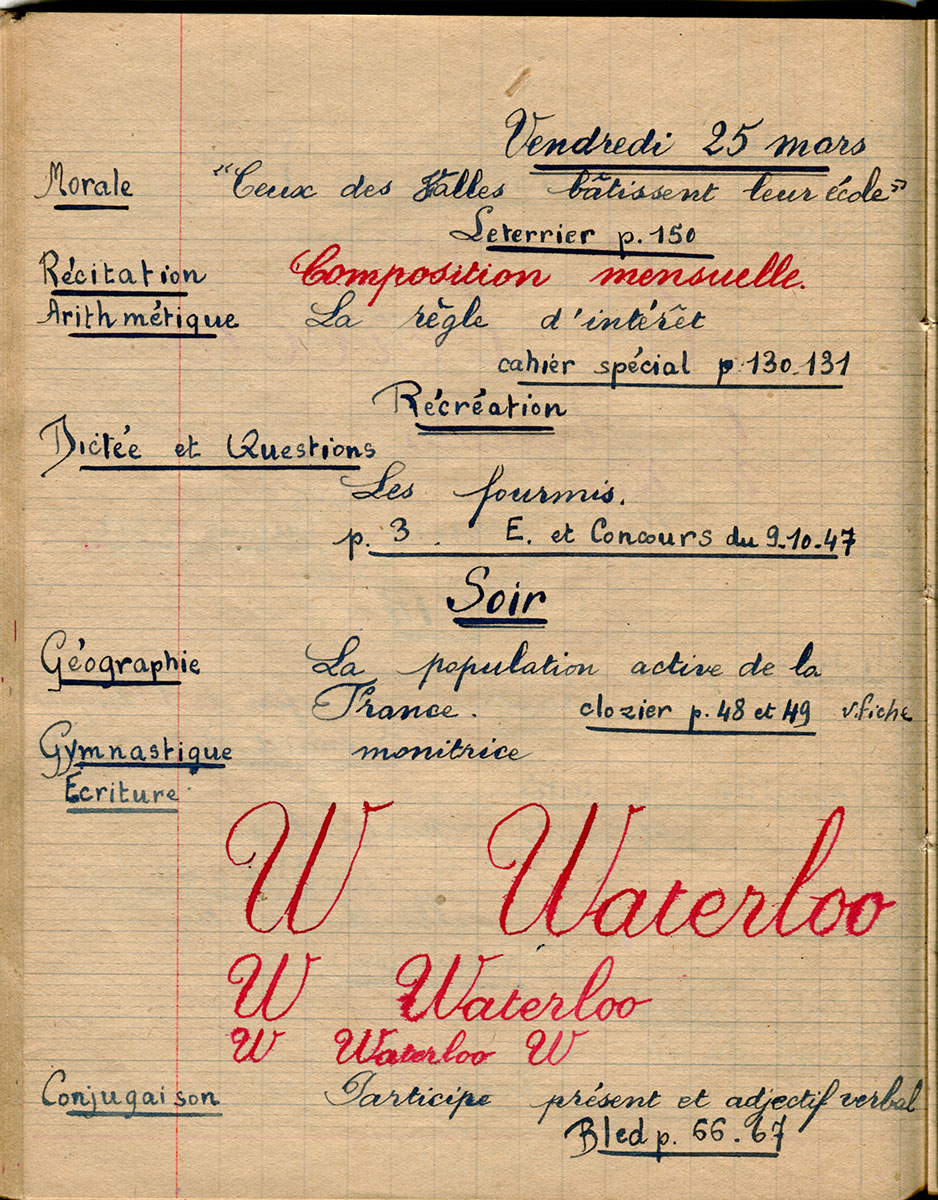 Vendredi 25 mars
Morale "Ceux des Falles bâtissent leur école"
Leterrier p. 150
Récitation Composition mensuelle.
Arithmétique La règle d'intérêt
cahier spécial p. 130.131
Récréation
Dictée et Questions
Les fourmis.
p. 3. E. et Concours du 9.10.47
Soir
Géographie La population active de la
France. clozier p. 48 et 49 v. fiche
Gymnastique monitrice
Ecriture
W Waterloo
W Waterloo
W Waterloo W
Conjugaison Participe présent et adjectif verbal
Bled p. 66.67